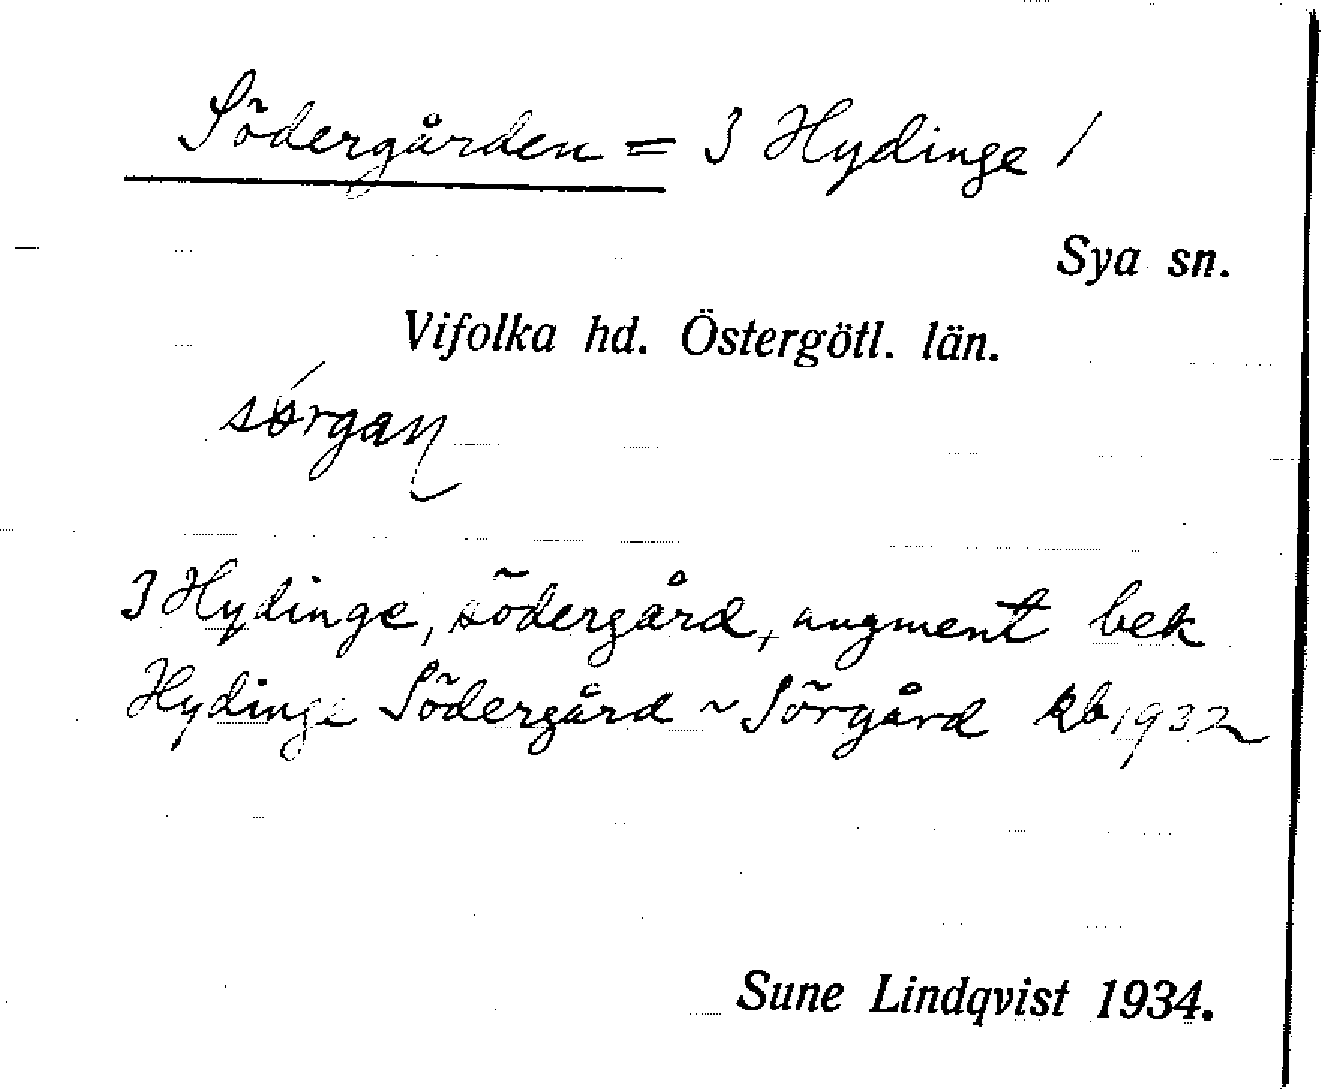 Södergården = 3 Hydinge /
Sya sn.
Vifolka hd. Östergötl. län.
sørgan
3 Hydinge, södergård, augment bek
Hydinge Södergård ~ Sörgård kb 1932
Sune Lindqvist 1934.